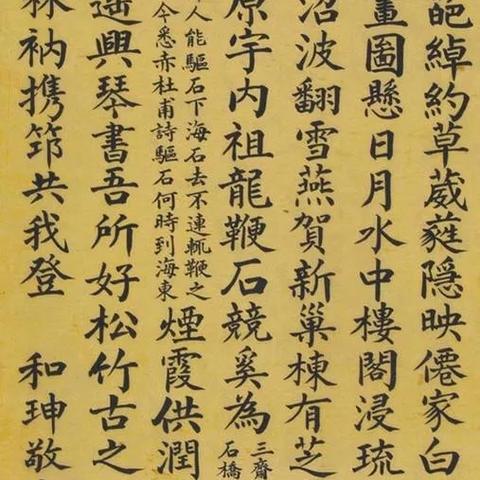 葩綽約草葳蕤隱映僊家白
畫圖懸日月水中樓閣浸琉
沼波翻雪燕賀新巢棟有芝
原宇内祖龍鞭石競奚為
三齊
石橋
人能驅石下海石去不速輒鞭之
今悉赤杜甫詩驅石何時到海東
煙霞供潤
遥興琴書吾所好松竹古之
林衲携笻共我登 和珅敬